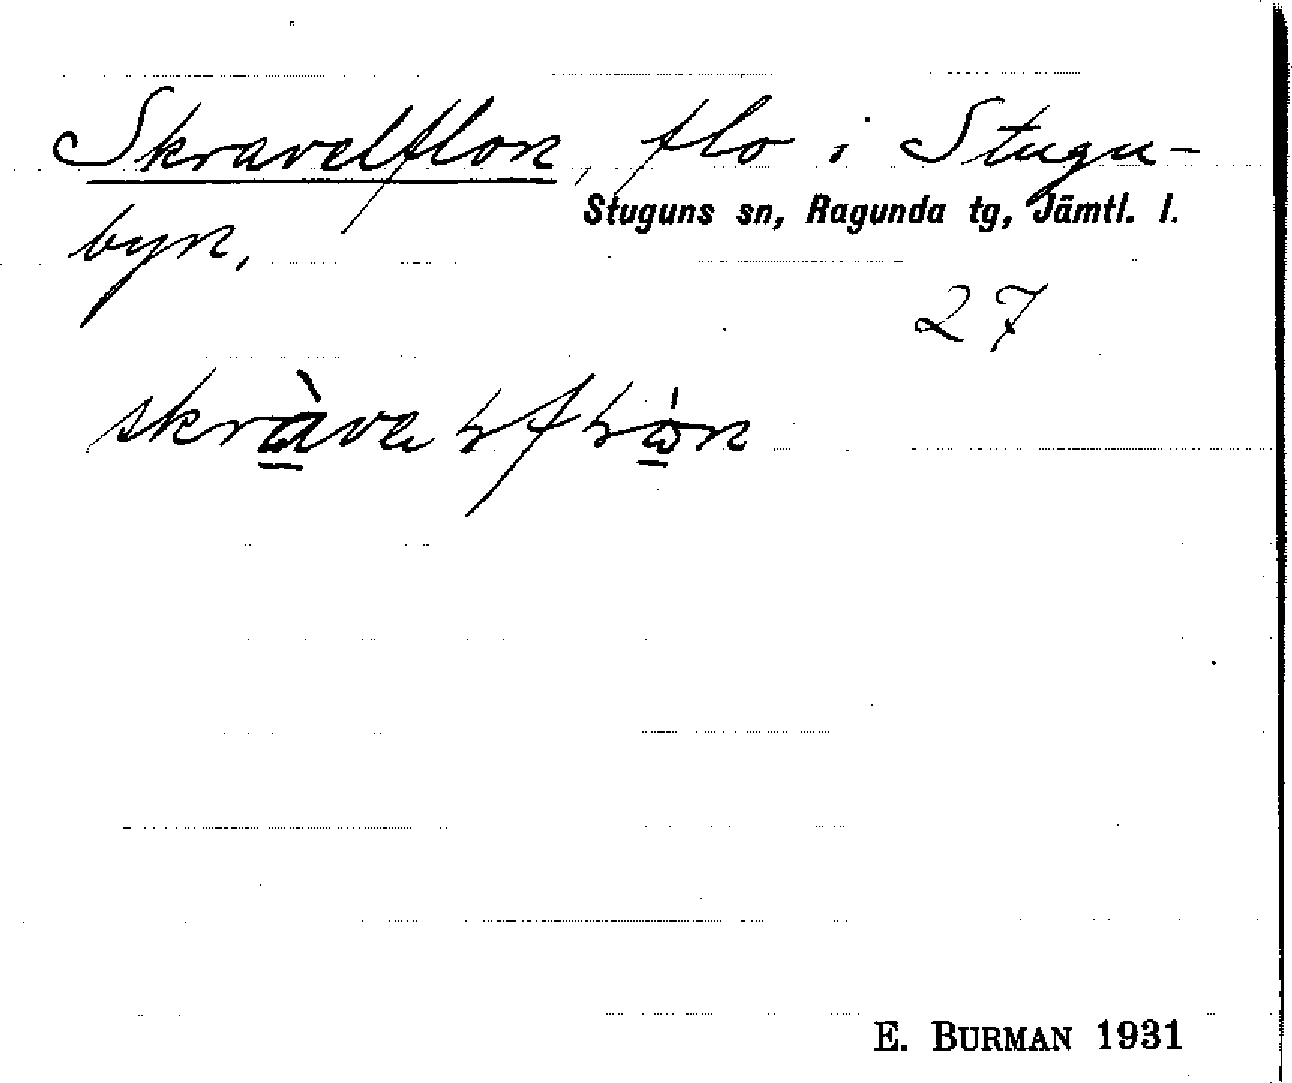 Skravelflon, flo i Stugu-
Stuguns sn, Ragunda tg, Jämtl. l.
byn,
27
E. BURMAN 1931